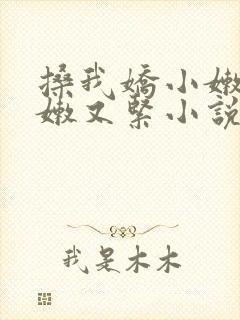 搡我嬌小嫩
嫩又緊小說
我是木木